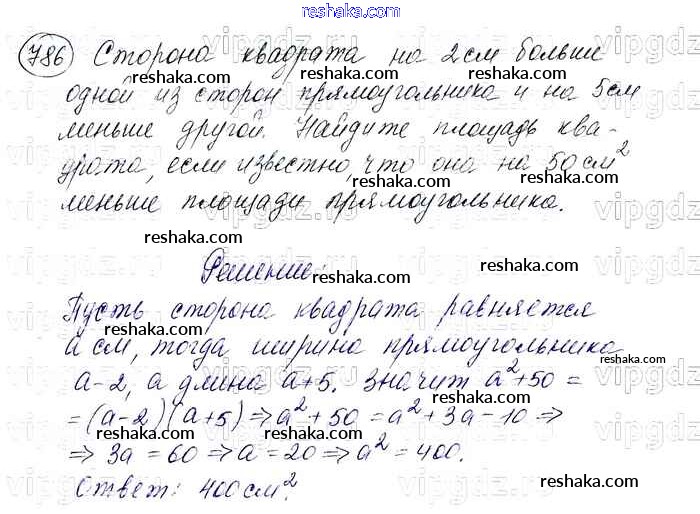 reshaka.com
786 Сторона квадрата на 2 см больше
reshaka.com reshaka.com
одной из сторон прямоугольника и на 5 см
reshaka.com reshaka.com
меньше другой. Найдите площадь ква-
драта, если известно, что она на 50 см²
reshaka.com reshaka.com
меньше площади прямоугольника.
reshaka.com reshaka.com
Решение:
reshaka.com reshaka.com
Пусть сторона квадрата равняется
reshaka.com reshaka.com
a см, тогда ширина прямоугольника
reshaka.com
a-2, а длина a+5. Значит a²+50=
reshaka.com reshaka.com
=(a-2)(a+5)⇒a²+50=a²+3a-10⇒
reshaka.com reshaka.com
⇒3a=60⇒a=20⇒a²=400.
reshaka.com reshaka.com
Ответ: 400 см².